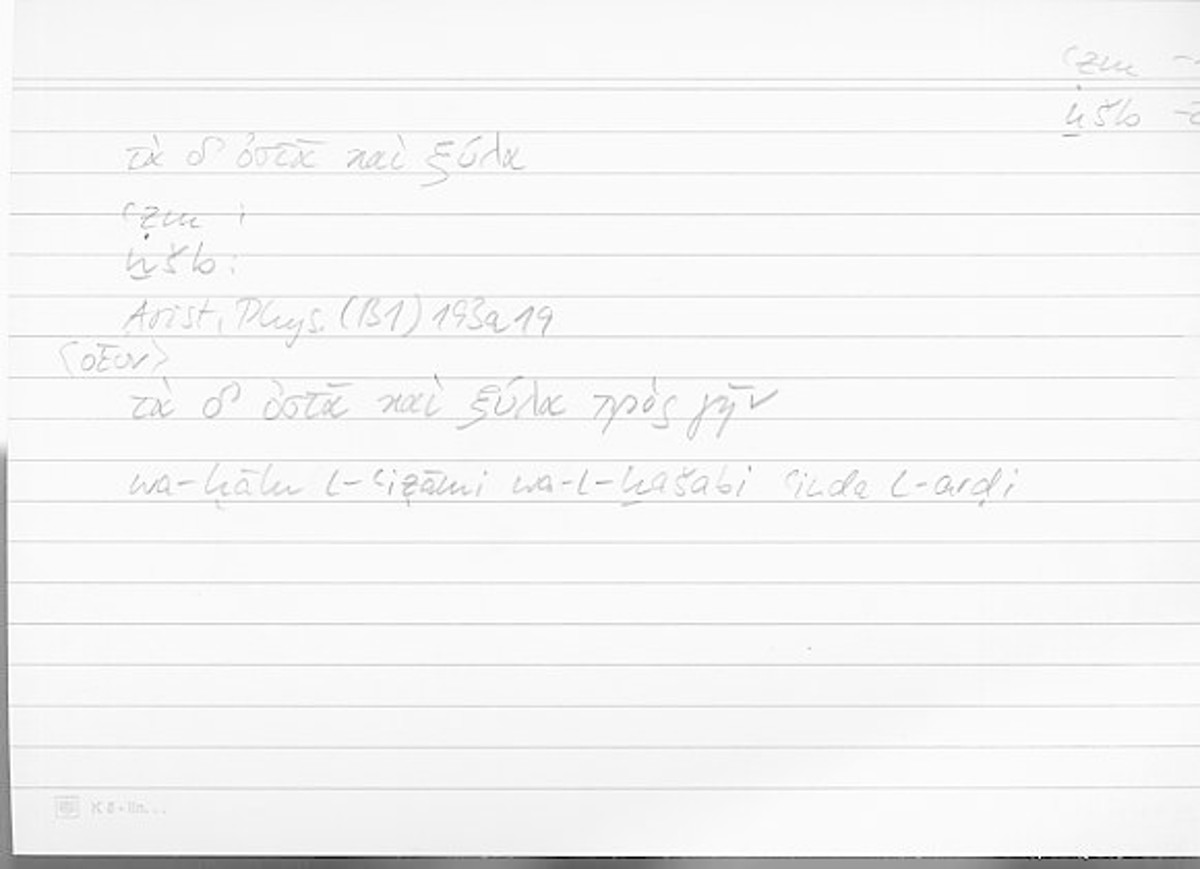 ʿẓm
ḫšb
τὰ δ' ὀστᾶ καὶ ξύλα
ʿẓm :
ḫšb :
Arist. Phys. (B1) 193a19
<οἷον>
τὰ δ' ὀστᾶ καὶ ξύλα πρὸς γῆν
wa-ḥālu l-ʿiẓāmi wa-l-ḫašabi ʿinda l-arḍi